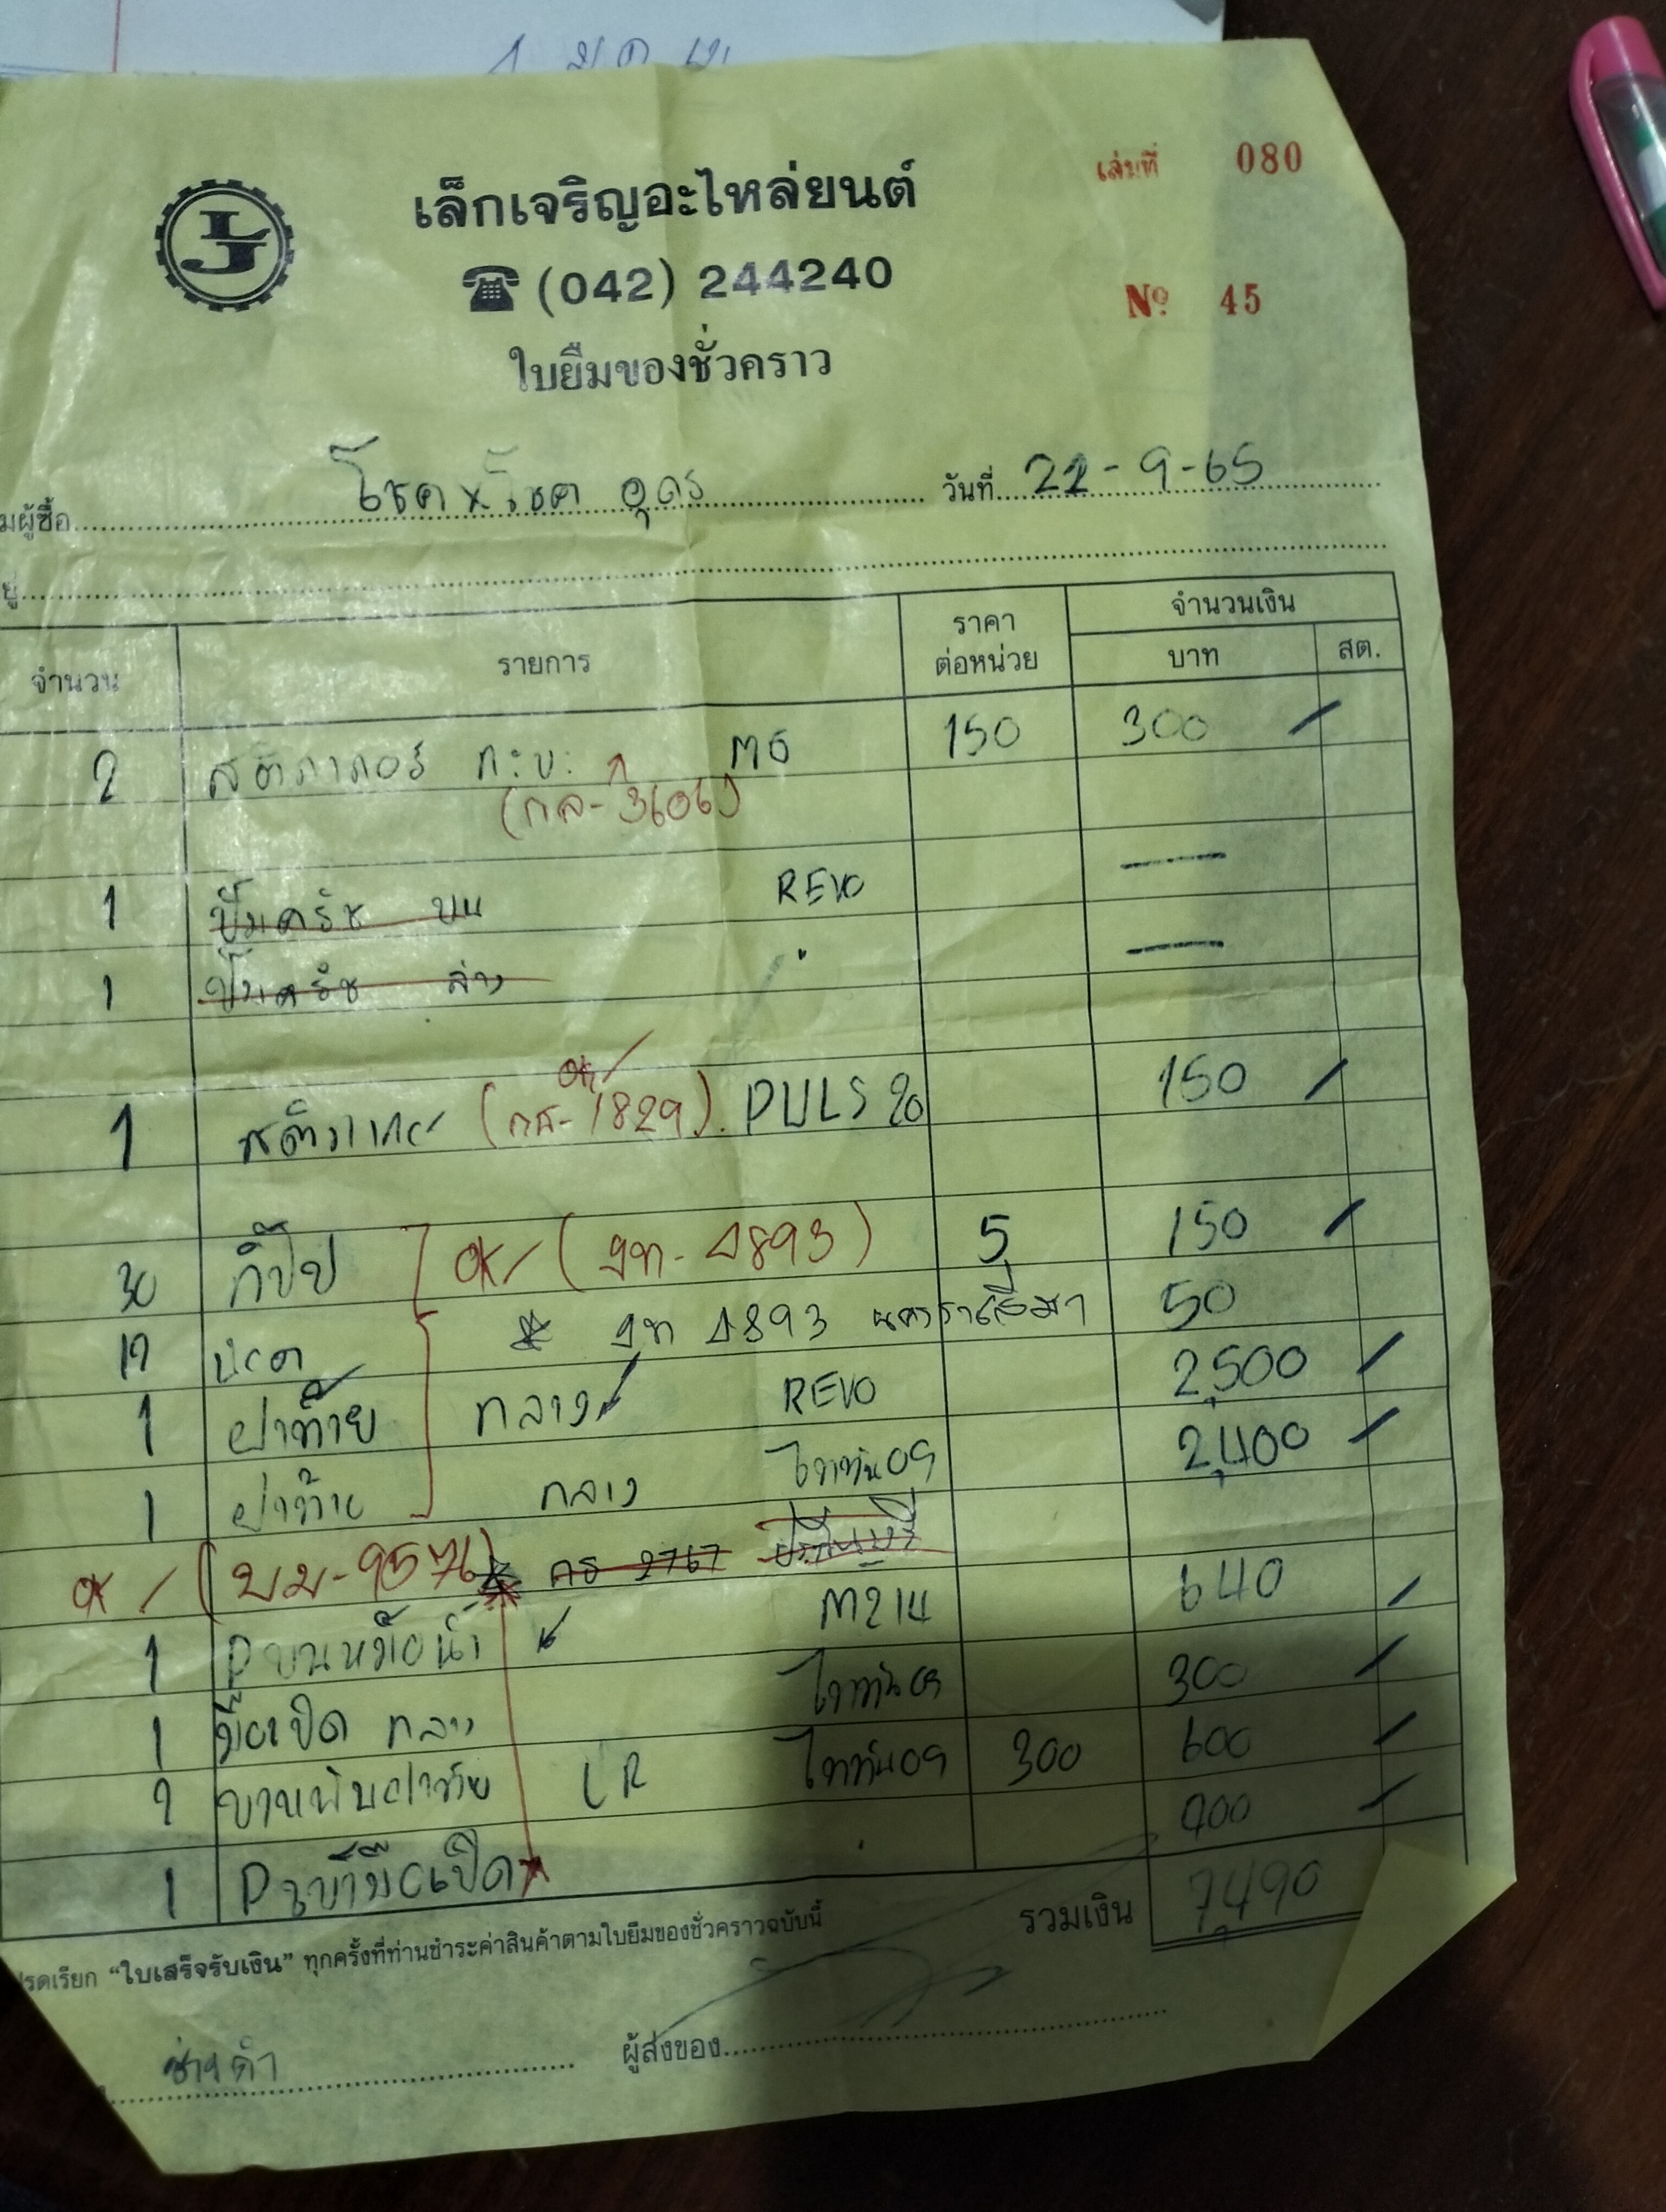 LJ
เล็กเจริญอะไหล่ยนต์
เล่มที่ 080
☎ (042) 244240
Nº 45
ใบยืมของชั่วคราว
มผู้ซื้อ โชค x โชค อุดร วันที่ 22-9-65
ยู่
จำนวน รายการ ราคาต่อหน่วย จำนวนเงิน
บาท สต.
2 สติกเกอร์ ก:บ: M6 150 300
(กล-3606)
1 ปั๊มครัช บน REVO
1 ปั๊มครัช ล่าง
ok
1 (กส-1829) PULS 20 150
30 กิ๊ป ok (ฐท-4893) 5 150
ฐท 4893 นครราชสีมา 50
1 ฝาท้าย กลาง REVO 2,500
1 ฝาท้าย กลาง ไททัน09 2,400
ok (บม-9576) 2767
1 Pบนหม้อน้ำ M214 640
1 มือเปิด กลาง ไททัน09 300
2 ขาหนีบฝาท้าย LR ไททัน09 300 600
1 มือเปิด 400
รวมเงิน 7,490
ปรดเรียก “ใบเสร็จรับเงิน” ทุกครั้งที่ท่านชำระค่าสินค้าตามใบยืมของชั่วคราวฉบับนี้
ช่างดำ ผู้ส่งของ